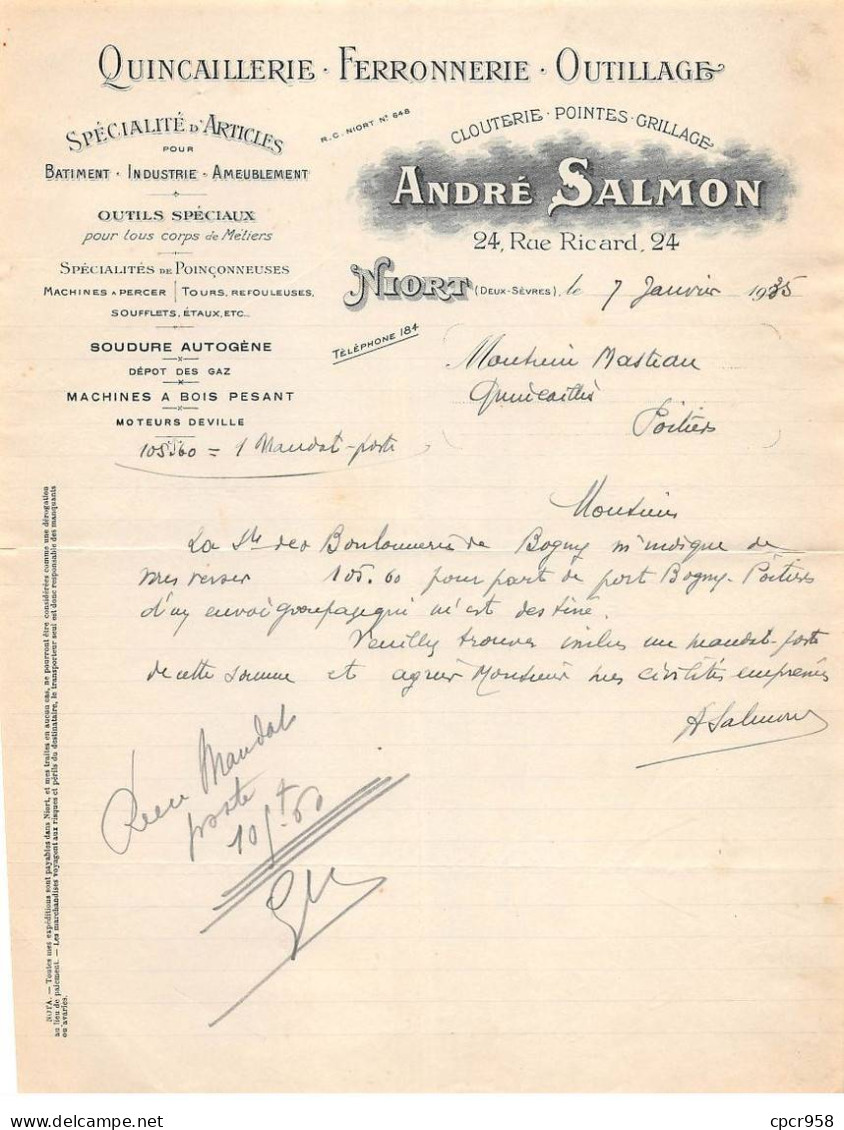 QUINCAILLERIE · FERRONNERIE · OUTILLAGE
SPÉCIALITÉ D'ARTICLES
POUR
BATIMENT · INDUSTRIE · AMEUBLEMENT
OUTILS SPÉCIAUX
pour tous corps de Métiers
SPÉCIALITÉS DE POINÇONNEUSES
MACHINES A PERCER | TOURS, REFOULEUSES,
SOUFFLETS, ÉTAUX, ETC...
SOUDURE AUTOGÈNE
DÉPOT DES GAZ
MACHINES A BOIS PESANT
MOTEURS DEVILLE
R.C. NIORT N° 648
CLOUTERIE · POINTES · GRILLAGE
ANDRÉ SALMON
24, Rue Ricard, 24
NIORT (DEUX-SÈVRES), le 7 Janvier 1935
TÉLÉPHONE 184
Monsieur Masteau
Quincailler
Poitiers
105.60 = 1 Mandat-poste
Monsieur
La Sté des Boulonneries de Bogny m'indique de
vous verser 105.60 pour part de port Bogny-Poitiers
d'un envoi groupage qui m'est destiné.
Veuillez trouver inclus un mandat-poste
de cette somme et agréer Monsieur mes civilités empressées
A Salmon
Reçu Mandat
poste
105f 60
NOTA. — Toutes mes expéditions sont payables dans Niort, et mes traites en aucun cas, ne pourront être considérées comme une dérogation
au lieu de paiement. — Les marchandises voyagent aux risques et périls du destinataire, le transporteur seul est donc responsable des manquants
ou avaries.
cpcr958